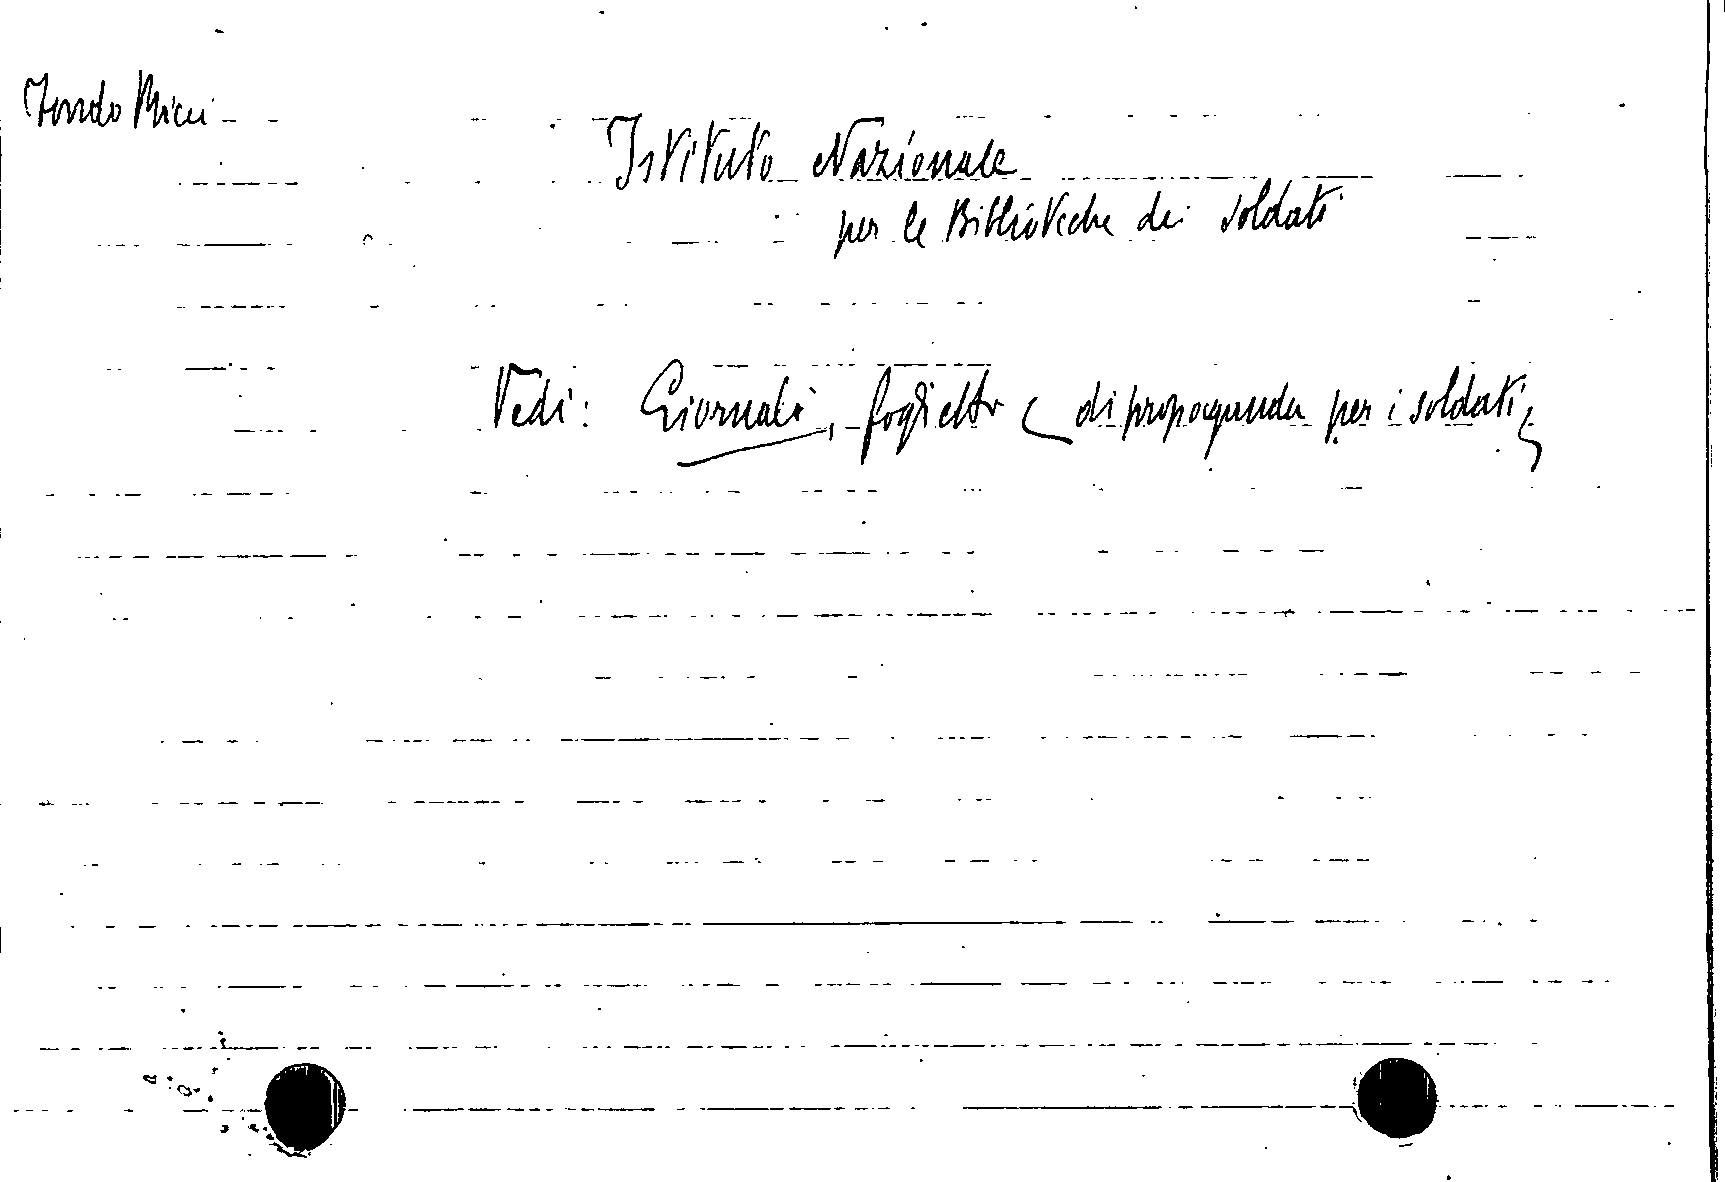 Fondo Micci
Istituto Nazionale
per le Biblioteche dei soldati
Vedi: Giornali, foglietti ( di propaganda per i soldati )